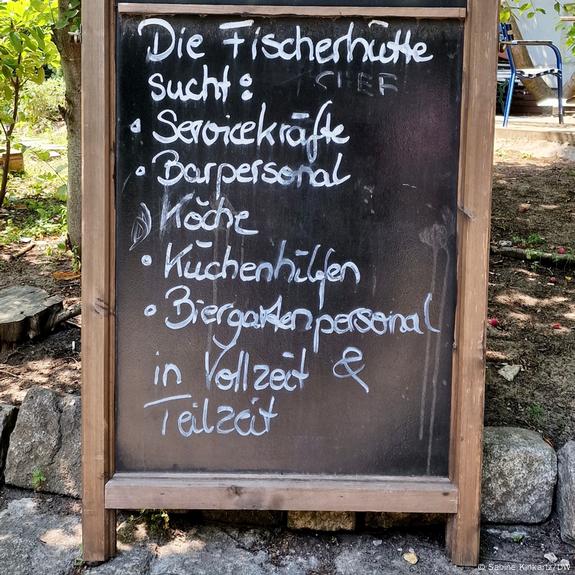 Die Fischerhütte
sucht:
CHEF
• Servicekräfte
• Barpersonal
Köche
• Küchenhilfen
• Biergartenpersonal
in Vollzeit &
Teilzeit
© Sabine Kinkartz/DW